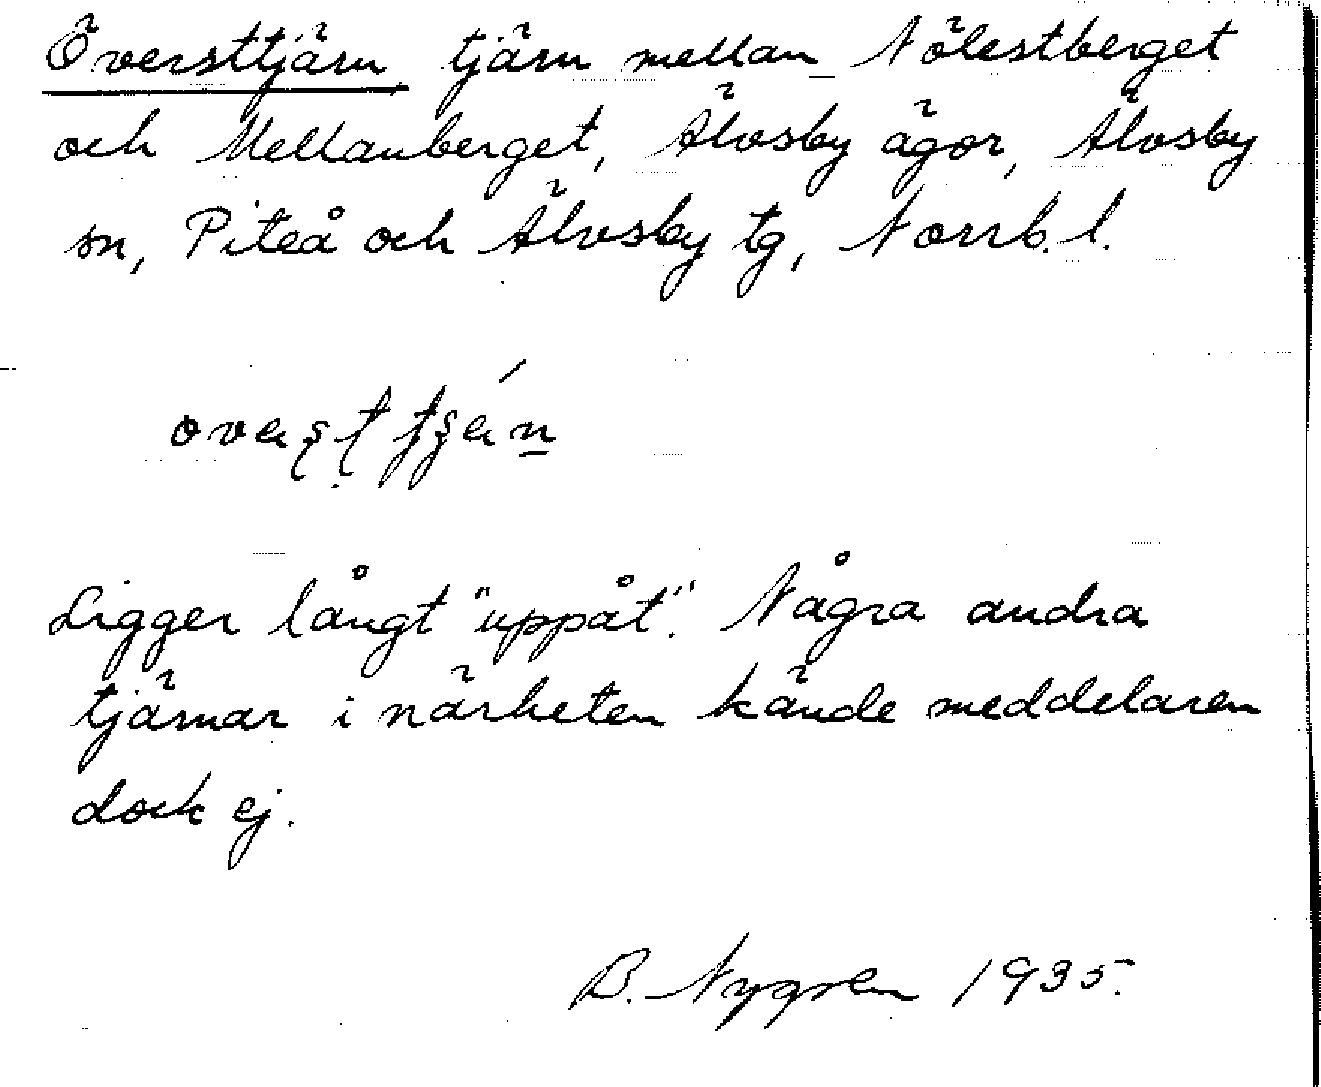 Översttjärn, tjärn mellan Nölestberget
och Mellanberget, Älvsby ägor, Älvsby
sn, Piteå och Älvsby tg, Norrb. l.
Ligger långt "uppåt". Några andra
tjärnar i närheten kände meddelaren
dock ej.
B. Nygren 1935.